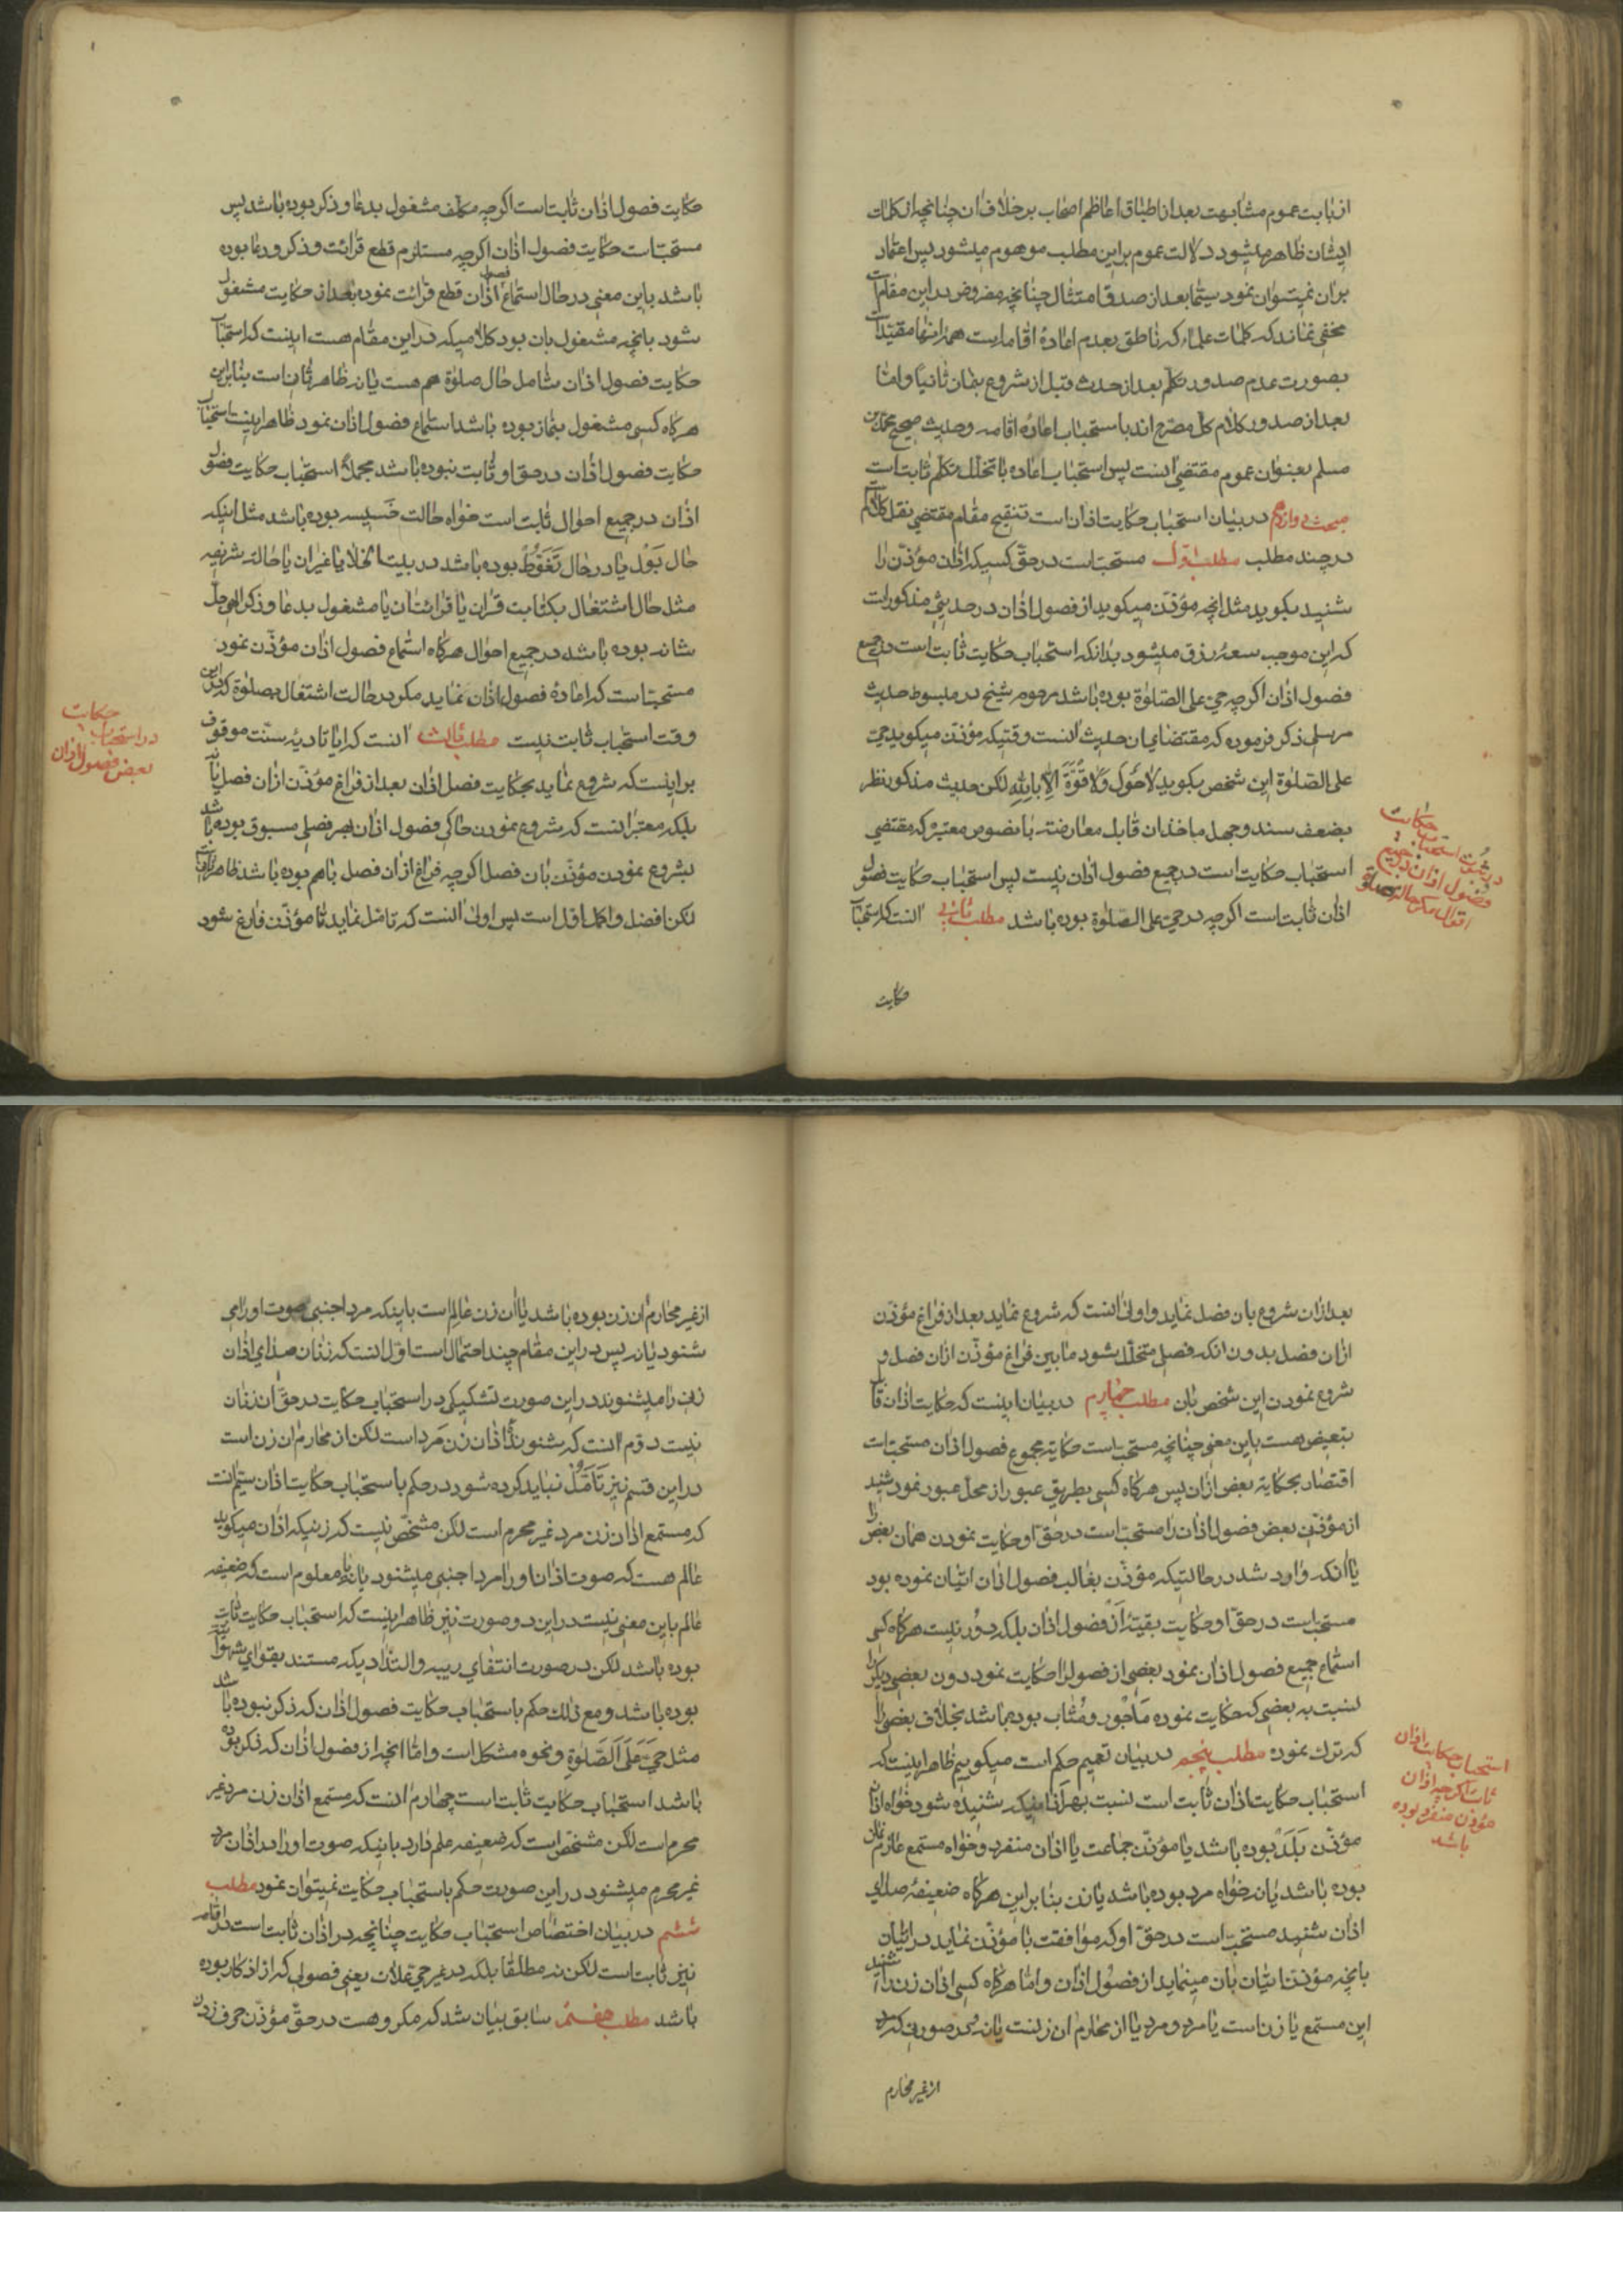 از بابت عموم مشابهت بعد از اطباق اعاظم اصحاب بر خلاف آن چنانچه از کلمات
ایشان ظاهر میشود دلالت عموم براین مطلب موهوم میشود پس اعتماد
بران نمیتوان نمود سیما بعد از صدق امتثال چنانچه مفروض در این مقام است
مخفی نماند که کلمات علماء که ناطق بعدم اعادهٔ اقامه است همه آنها مقید است
بصورت عدم صدور تکلم بعد از حدث و قبل از شروع بنماز ثانیاً و اما
بعد از صدور کلام کل مصرح اند باستحباب اعادهٔ اقامه و حدیث صحیح محمد بن
مسلم بعنوان عموم مقتضی اینست پس استحباب اعاده با تخلل تکلم ثابت است
مبحث دوازدهم در بیان استحباب حکایت اذان است تنقیح مقام مقتضی نقل کلام
در چند مطلب مطلب اول مستحب است در حق کسیکه اذان مؤذن را
شنید بگوید مثل انچه مؤذن میگوید از فصول اذان در حدیثی مذکور است
که این موجب سعهٔ رزق میشود بدانکه استحباب حکایت ثابت است در جمیع
فصول اذان اگرچه حی علی الصلوة بوده باشد مرحوم شیخ در مبسوط حدیث
مرسلی ذکر فرموده که مقتضای ان حدیث انست وقتیکه مؤذن میگوید حی
علی الصلوة این شخص بگوید لا حول ولا قوة الا بالله لکن حدیث مذکور نظر
بضعف سند و جهل ماخذ ان قابل معارضه با نصوص معتبره که مقتضی
استحباب حکایت است در جمیع فصول اذان نیست پس استحباب حکایت فصول
اذان ثابت است اگرچه در حی علی الصلوة بوده باشد مطلب ثانی انست که استحباب
حکایت
در ثبوت استحباب حکایت
فصول اذان در جمیع
احوال مگر حالة صلوة
حکایت فصول اذان ثابت است اگرچه مکلف مشغول بدعا و ذکر بوده باشد پس
مستحب است حکایت فصول اذان اگرچه مستلزم قطع قرائت و ذکر و دعا بوده
باشد باین معنی در حال استماع فصول اذان قطع قرائت نموده بعد از حکایت مشغول
شود بانچه مشغول بان بود کلامیکه در این مقام هست اینست که استحباب
حکایت فصول اذان شامل حال صلوة هم هست یا نه ظاهر ثانی است بنابراین
هرگاه کسی مشغول بنماز بوده باشد استماع فصول اذان نمود ظاهر اینست استحباب
حکایت فصول اذان در حق او ثابت نبوده باشد مجملاً استحباب حکایت فصول
اذان در جمیع احوال ثابت است خواه حالت خسیسه بوده باشد مثل اینکه
حال بول یا در حال تغوط بوده باشد در بیت الخلا یا غیر ان یا حالة شریفه
مثل حال اشتغال بکتابت قران یا قرائت ان یا مشغول بدعا و ذکر الهی جل
شانه بوده باشد در جمیع احوال هرگاه استماع فصول اذان مؤذن نمود
مستحب است که اعادهٔ فصول اذان نماید مگر در حالت اشتغال بصلوة که در این
وقت استحباب ثابت نیست مطلب ثالث انست که ایا تادیهٔ سنت موقوف
بر اینست که شروع نماید بحکایت فصل اذان بعد از فراغ مؤذن از ان فصل یا نه
بلکه معتبر انست که شروع نمودن حاکی فصول اذان بهر فصلی مسبوق بوده باشد
بشروع نمودن مؤذن بان فصل اگرچه فراغ از ان فصل باهم بوده باشد ظاهر ثانی است
لکن افضل و اکمل اول است پس اولی انست که تامل نماید تا مؤذن فارغ شود
در استحباب حکایت
بعض فصول اذان
بعد از ان شروع بان فصل نماید و اولی انست که شروع نماید بعد از فراغ مؤذن
از ان فصل بدون انکه فصلی متخلل شود مابین فراغ مؤذن از ان فصل و
شروع نمودن این شخص بان مطلب چهارم در بیان اینست که حکایت اذان قابل
تبعیض هست باین معنی چنانچه مستحب است حکایة مجموع فصول اذان مستحب است
اقتصار بحکایة بعض از ان پس هرگاه کسی بطریق عبور از محل عبور نمود شنید
از مؤذن بعض فصول اذان را مستحب است در حق او حکایت نمودن همان بعض را
یا انکه وارد شد در حالتیکه مؤذن بغالب فصول اذان اتیان نموده بود
مستحب است در حق او حکایت بقیهٔ آن فصول اذان بلکه دور نیست هرگاه کسی
استماع جمیع فصول اذان نمود بعضی از فصول را حکایت نمود دون بعضی دیگر را
نسبت به بعضی که حکایت نموده ماجور و مثاب بوده باشد بخلاف بعضی را
که ترک نموده مطلب پنجم در بیان تعمیم حکم است میگویم ظاهر اینست که
استحباب حکایت اذان ثابت است نسبت بهر اذانیکه شنیده شود خواه اذان
مؤذن بلد بوده باشد یا مؤذن جماعت یا اذان منفرد و خواه مستمع عازم نماز
بوده باشد یا نه خواه مرد بوده باشد یا زن بنابراین هرگاه ضعیفهٔ صدای
اذان شنید مستحب است در حق او که موافقت با مؤذن نماید در اتیان
بانچه مؤذن اتیان بان مینماید از فصول اذان و اما هرگاه کسی اذان زن را شنید
این مستمع یا زن است یا مرد و مرد یا از محارم ان زنست یا نه و در صورتی که مرد
از غیر محارم
استحباب حکایت اذان
ثابت اگرچه اذان
مؤذن منفرد بوده
باشد
از غیر محارم ان زن بوده باشد یا ان زن عالم است باینکه مرد اجنبی صوت او را می
شنود یا نه پس در این مقام چند احتمال است اول انست که زنان صدای اذان
زن را میشنوند در این صورت تشکیکی در استحباب حکایت در حق ان زنان
نیست دوم انست که شنوندهٔ اذان زن مرد است لکن از محارم ان زن است
در این قسم نیز تامل نباید کرده شود در حکم باستحباب حکایت اذان سیم انست
که مستمع اذان زن مرد غیر محرم است لکن مشخص نیست که زنیکه اذان میگوید
عالم هست که صوت اذان او را مرد اجنبی میشنود یا نه یا معلوم است که ضعیفه
عالم باین معنی نیست در این دو صورت نیز ظاهر اینست که استحباب حکایت ثابت
بوده باشد لکن در صورت انتفای ریبه و التذاذیکه مستند بقوای شهویه
بوده باشد و مع ذلک حکم باستحباب حکایت فصول اذان که ذکر نبوده باشد
مثل حی علی الصلوة و نحوه مشکل است و اما انچه از فصول اذان که ذکر بوده
باشد استحباب حکایت ثابت است چهارم انست که مستمع اذان زن مرد غیر
محرم است لکن مشخص است که ضعیفه علم دارد باینکه صوت او را در اذان مرد
غیر محرم میشنود در این صورت حکم باستحباب حکایت نمیتوان نمود مطلب
ششم در بیان اختصاص استحباب حکایت چنانچه در اذان ثابت است در اقامه
نیز ثابت است لکن نه مطلقا بلکه در غیر حی علات یعنی فصولی که از اذکار بوده
باشد مطلب هفتم سابق بیان شد که مکروهست در حق مؤذن حرف زدن